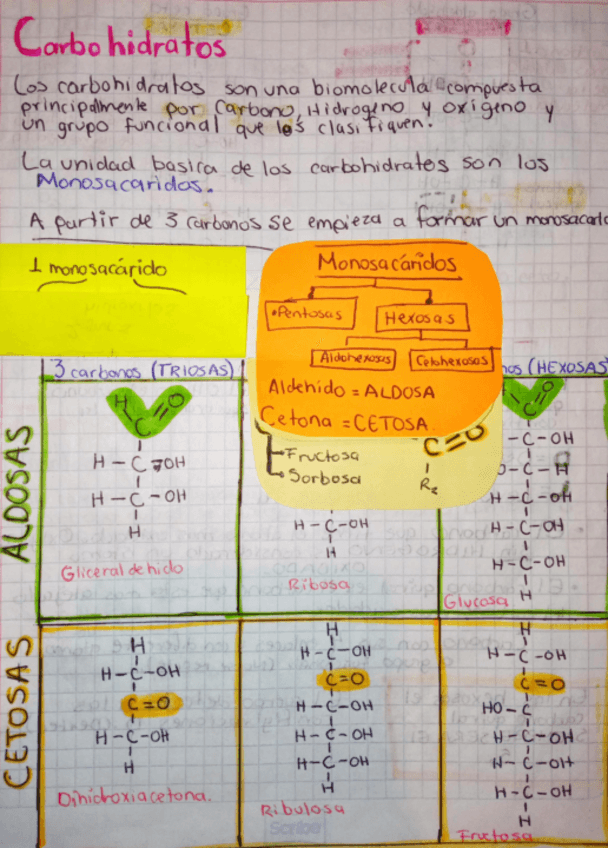 Carbohidratos
Los carbohidratos son una biomolecula compuesta
principalmente por Carbono, Hidrogeno y oxigeno y
un grupo funcional que los clasifiquen.
La unidad basica de los carbohidratos son los
Monosacaridos.
A partir de 3 carbonos se empieza a formar un
1 monosacárido
Monosacáridos
•Pentosas
Hexosas
Aldohexosas
Cetohexosas
Aldehido = ALDOSA
Cetona = CETOSA
Fructosa
Sorbosa
C=O
R₂
3 carbonos (TRIOSAS)
(HEXOSAS
ALDOSAS
H C=O
H-C-OH
H-C-OH
H
Gliceraldehido
H-C-OH
H
Ribosa
C=O
-C-OH
-C-H
H-C-OH
H-C-OH
H-C-OH
H
Glucosa
CETOSAS
H
H-C-OH
C=O
H-C-OH
H
Dihidroxiacetona.
H
H-C-OH
C=O
H-C-OH
H-C-OH
H-C-OH
H
Ribulosa
H
H-C-OH
C=O
HO-C
H-C-OH
H-C-OH
H-C-OH
H
Fructosa
Scribe